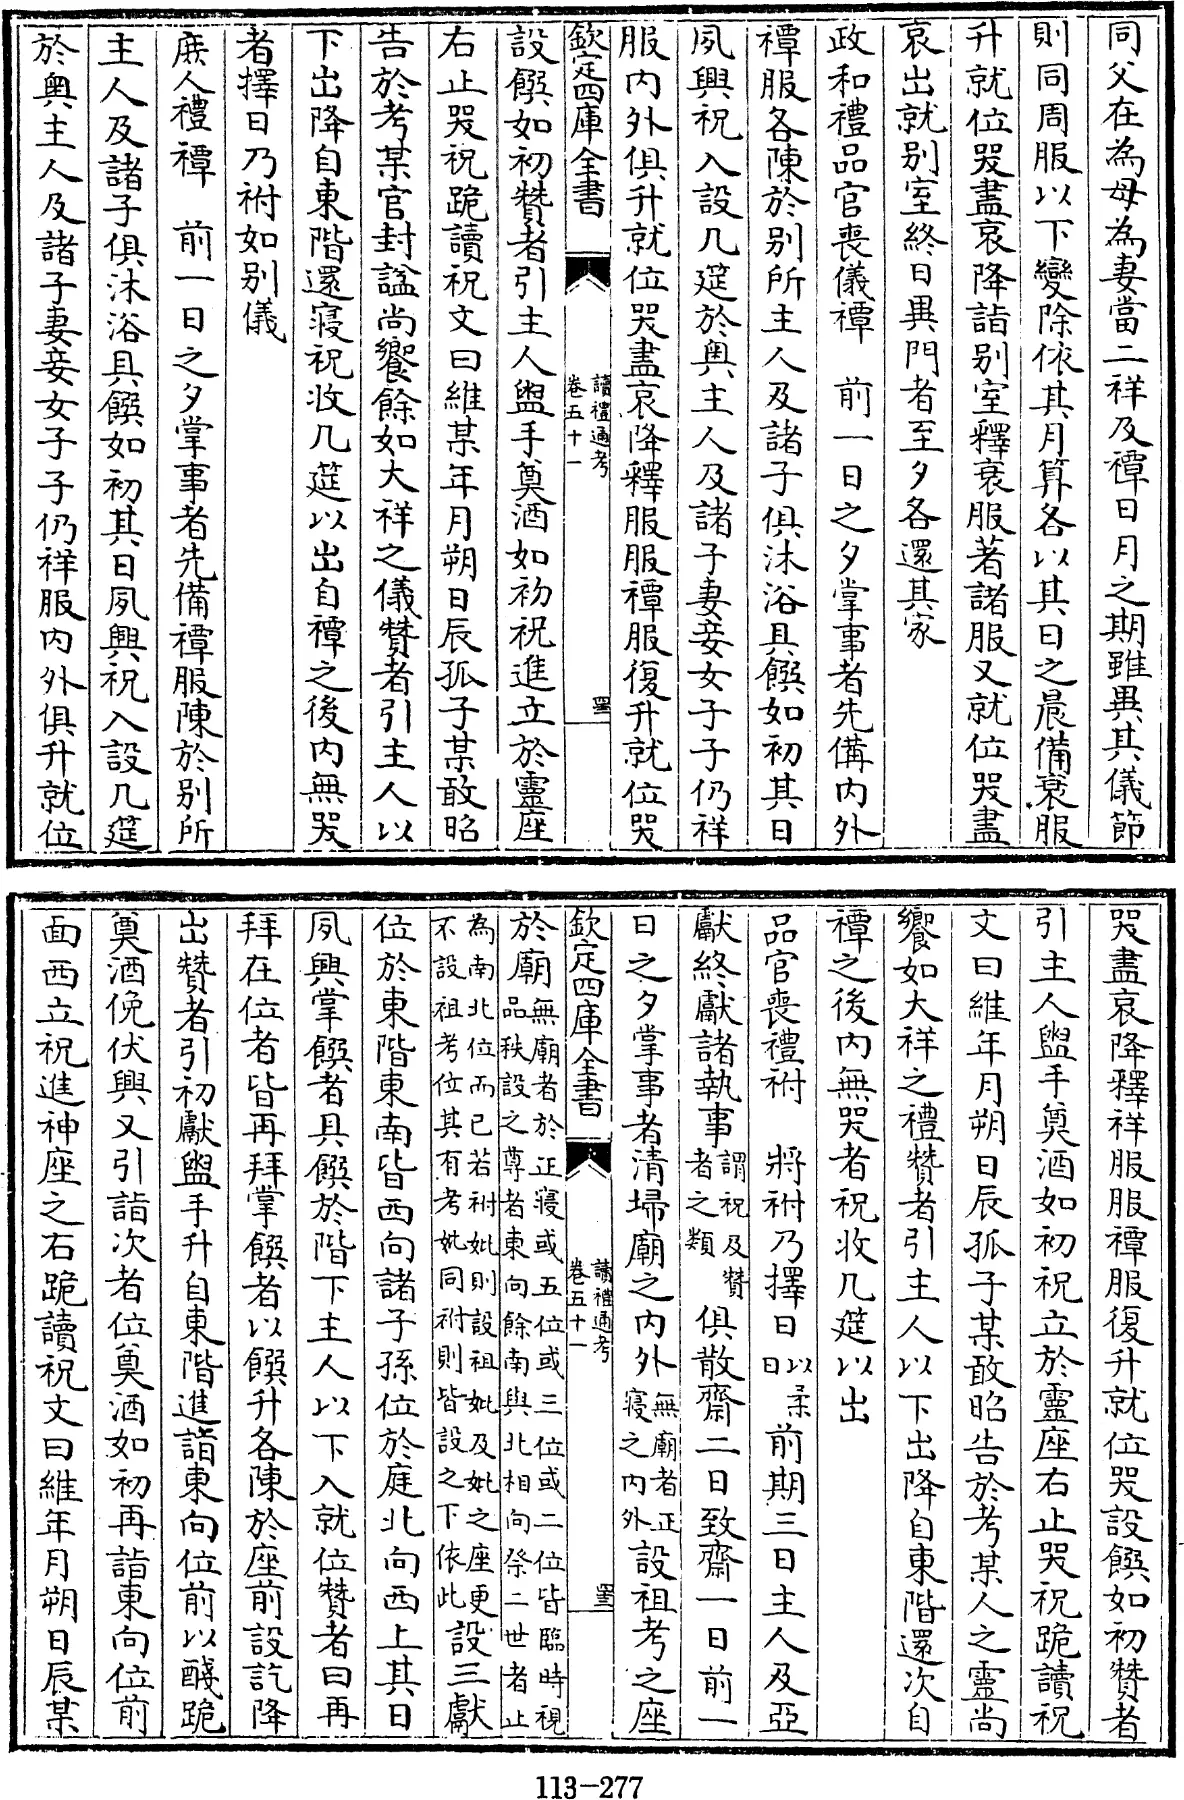 同父在為母為妻當二祥及禫日月之期雖畢其儀節
則同周服以下變除依其月算各以其日之晨備衰服
升就位哭盡哀降詣别室釋衰服著諸服又就位哭盡
哀出就别室終日異門者至夕各還其家
政和禮品官喪儀禫 前一日之夕掌事者先備内外
禫服各陳於别所主人及諸子俱沐浴具饌如初其日
夙興祝入設几筵於奥主人及諸子妻妾女子子仍祥
服内外俱升就位哭盡哀降釋服服禫服復升就位哭
欽定四庫全書
讀禮通考
卷五十一
設饌如初贊者引主人盥手奠酒如初祝進立於靈座
右止哭祝跪讀祝文曰維某年月朔日辰孤子某敢昭
告於考某官封諡尚饗餘如大祥之儀贊者引主人以
下出降自東階還寢祝收几筵以出自禫之後内無哭
者擇日乃祔如别儀
庶人禮禫 前一日之夕掌事者先備禫服陳於别所
主人及諸子俱沐浴具饌如初其日夙興祝入設几筵
於奥主人及諸子妻妾女子子仍祥服内外俱升就位
哭盡哀降釋祥服服禫服復升就位哭設饌如初贊者
引主人盥手奠酒如初祝立於靈座右止哭祝跪讀祝
文曰維年月朔日辰孤子某敢昭告於考某人之靈尚
饗如大祥之禮贊者引主人以下出降自東階還次自
禫之後内無哭者祝收几筵以出
品官喪禮祔 將祔乃擇日日以柔前期三日主人及亞
獻終獻諸執事謂祝及贊者之類俱散齋二日致齋一日前一
日之夕掌事者清埽廟之内外無廟者正寢之内外設祖考之座
欽定四庫全書
讀禮通考
卷五十一
於廟無廟者於正寢或五位或三位或二位皆臨時視品秩設之尊者東向餘南與北相向祭二世者止
為南北位而已若祔妣則設祖妣及妣之座更不設祖考位其有考妣同祔則皆設之下依此設三獻
位於東階東南皆西向諸子孫位於庭北向西上其日
夙興掌饌者具饌於階下主人以下入就位贊者曰再
拜在位者皆再拜掌饌者以饌升各陳於座前設訖降
出贊者引初獻盥手升自東階進詣東向位前以醆跪
奠酒俛伏興又引詣次者位奠酒如初再詣東向位前
面西立祝進神座之右跪讀祝文曰維年月朔日辰某
113-277